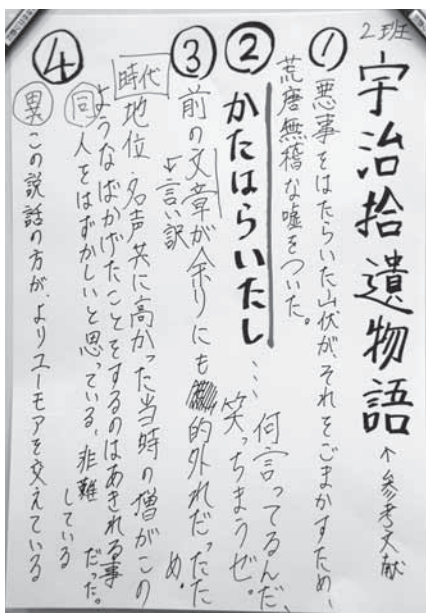 2班
宇治拾遺物語 ↑参考文献
① 悪事をはたらいた山伏が、それをごまかすため、
荒唐無稽な嘘をついた。
② かたはらいたし…何言ってるんだ
笑っちまうぜ。
③ 前の文章が余りにも的外れだったため。
↓言い訳
時代 地位・名声共に高かった当時の僧がこの
ようなばかげたことをするのはあきれる事だった。
④ 同 人をはずかしいと思っている、非難している
異 この説話の方が、よりユーモアを交えている